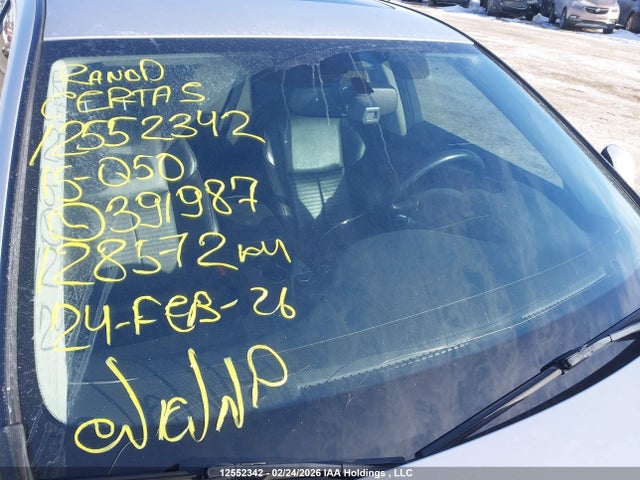 RANOD
CERTAS
12552342
15-Q50
391987
128572KM
24-FEB-26
12552342 - 02/24/2026 IAA Holdings , LLC